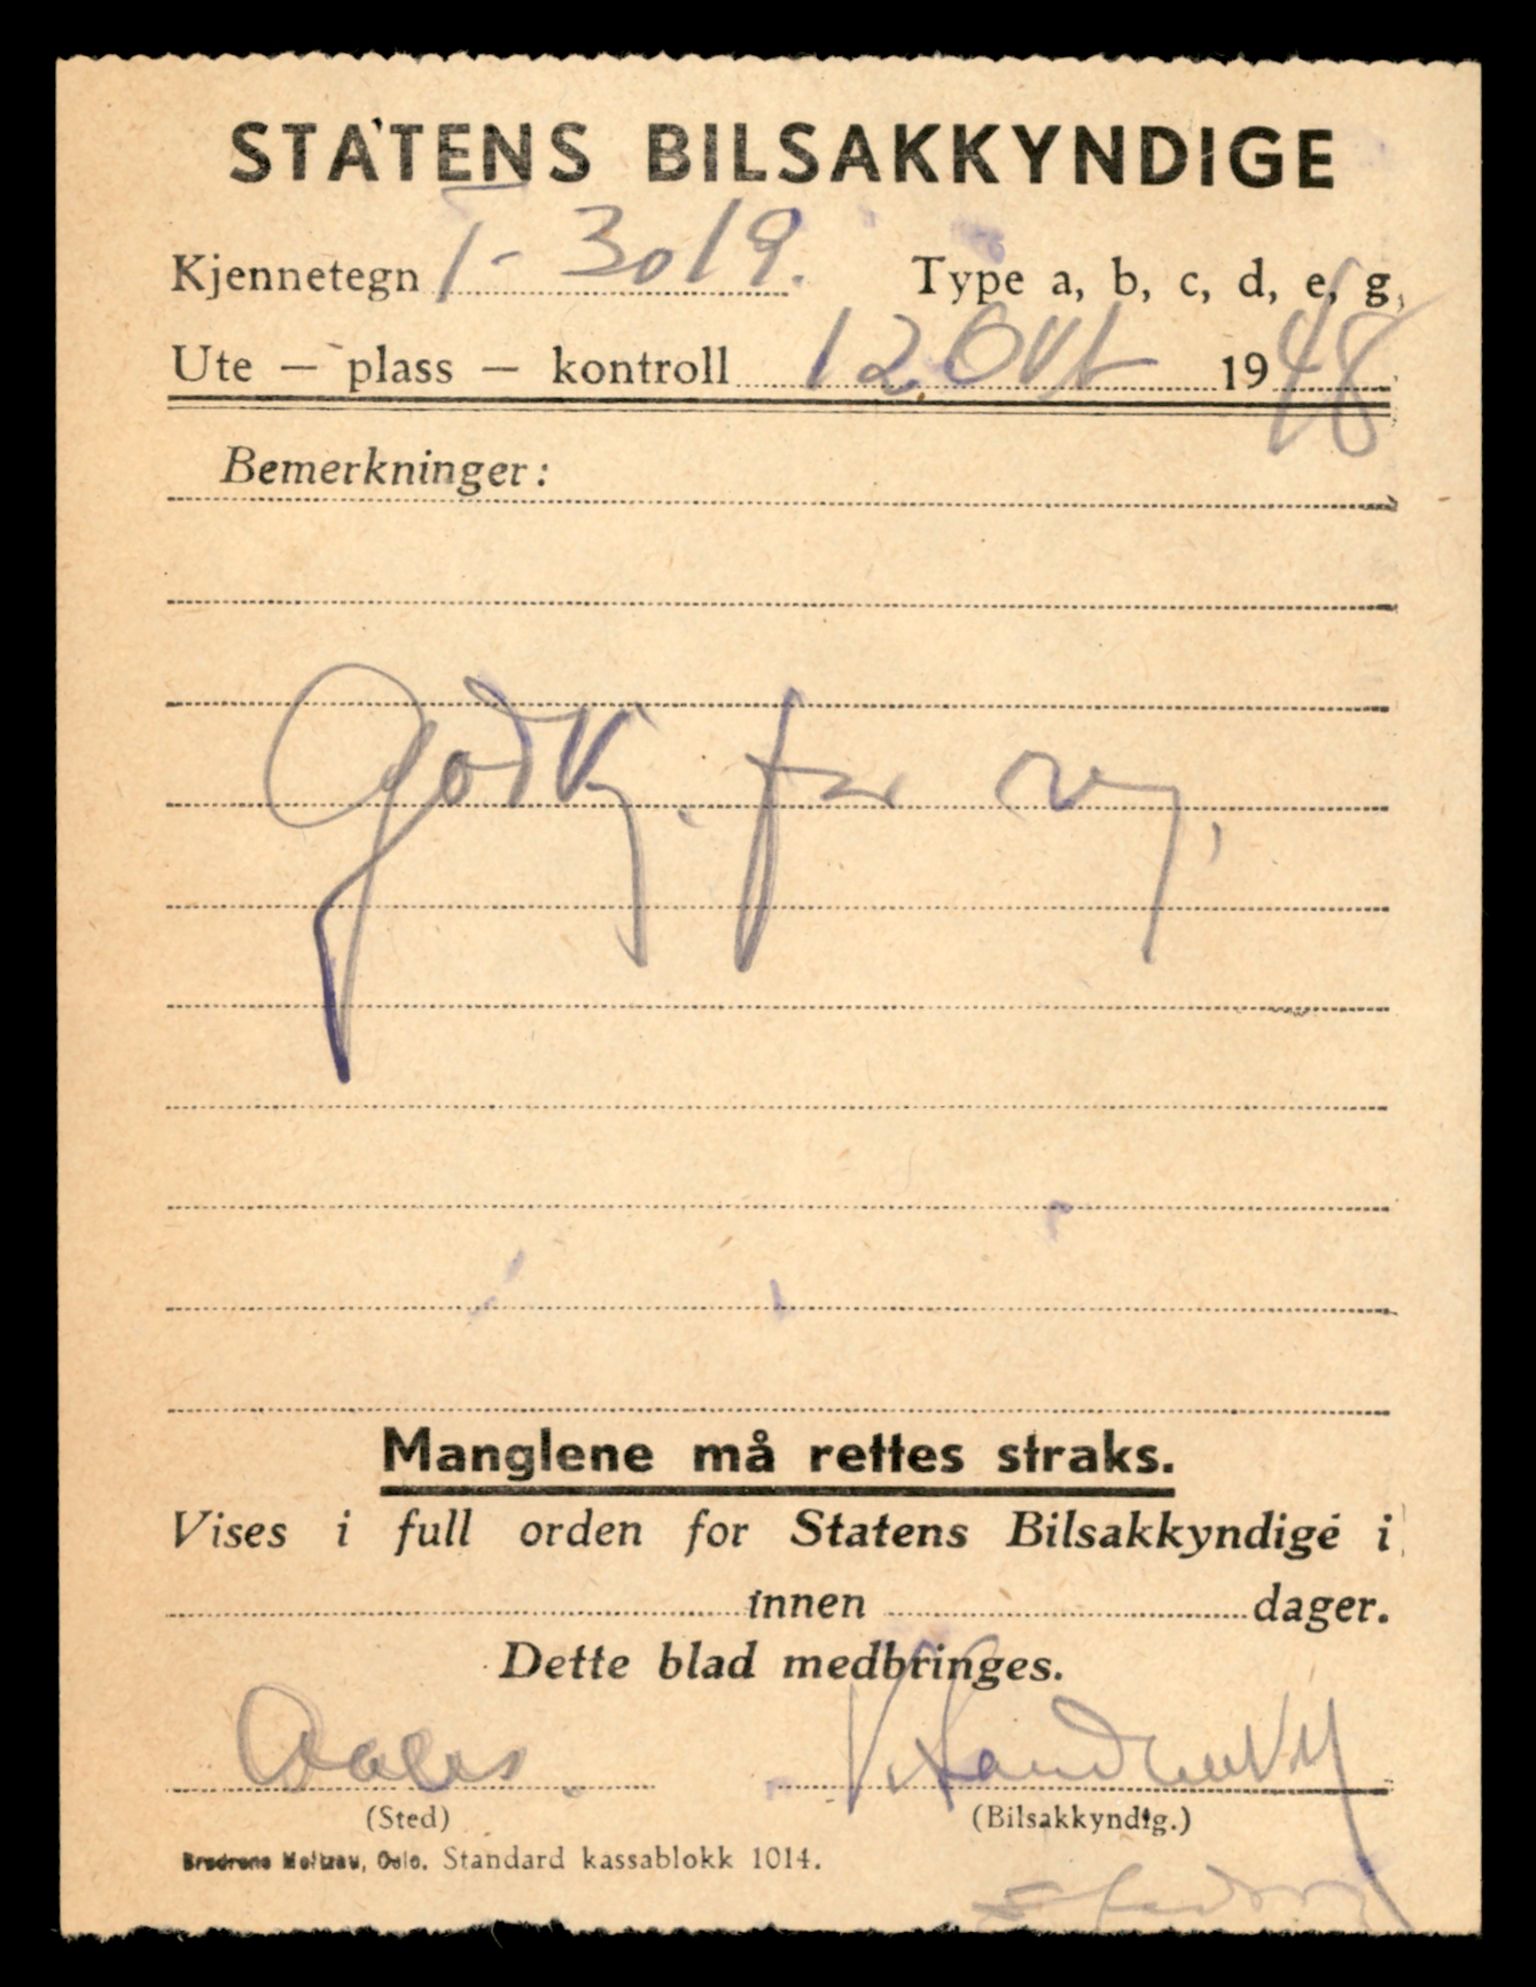 STATENS BILSAKKYNDIGE
Kjennetegn T - 3019. Type a, b, c, d, e, g,
Ute — plass — kontroll 12 Okt 1948
Bemerkninger:
Godkj. for reg.
Manglene må rettes straks.
Vises i full orden for Statens Bilsakkyndige i
innen dager.
Dette blad medbringes.
Aales.
(Sted) (Bilsakkyndig.)
Brødrene Moltzau, Oslo. Standard kassablokk 1014.